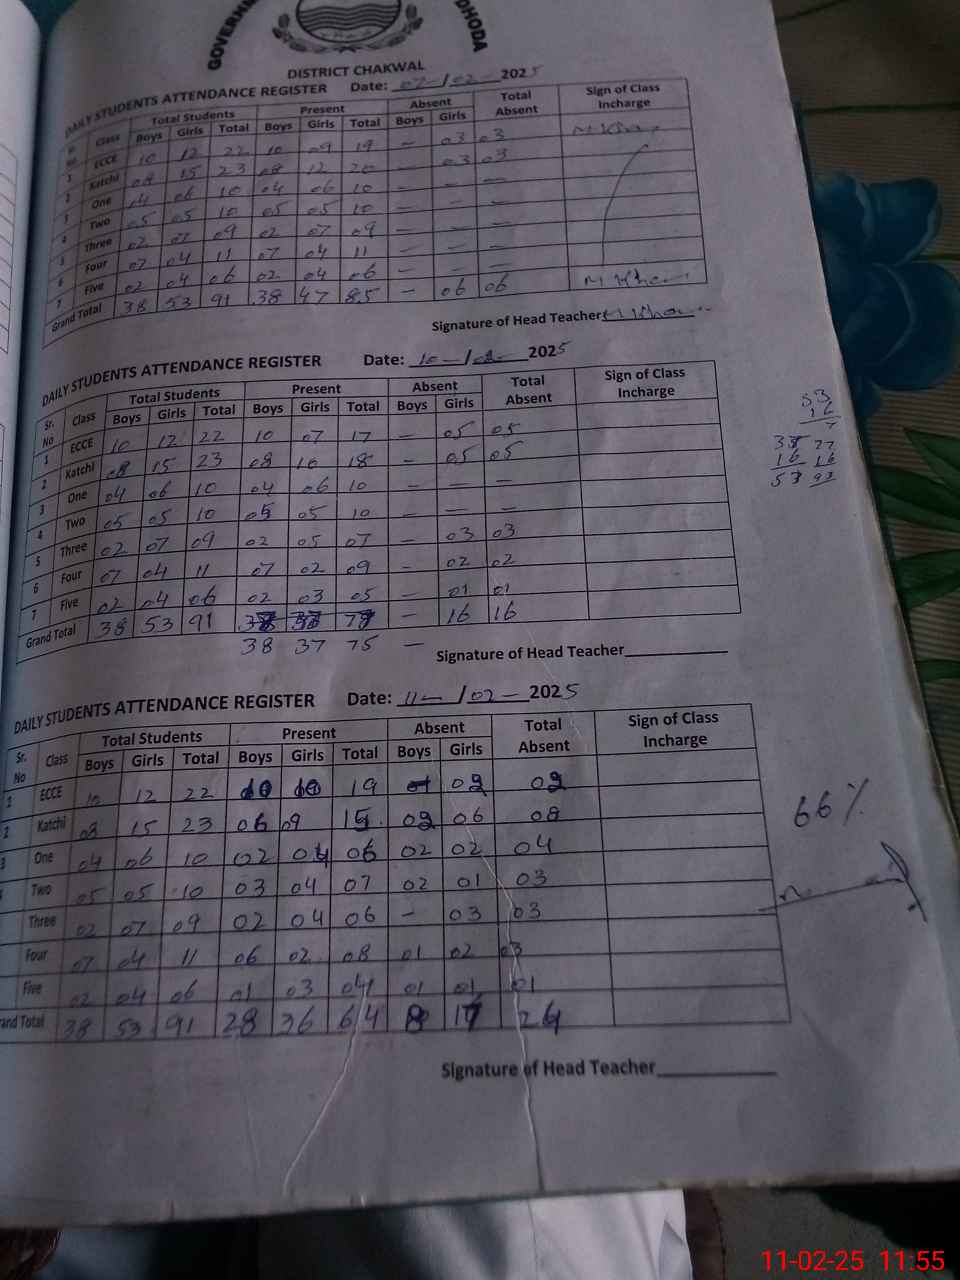 GOVERNM DHODA
DISTRICT CHAKWAL
DAILY STUDENTS ATTENDANCE REGISTER Date: 07-/02-2025
Sr. No Class Total Students Present Absent Total Absent Sign of Class Incharge
Boys Girls Total Boys Girls Total Boys Girls
1 ECCE 10 12 22 10 09 19 - 03 03
2 Katchi 08 15 23 08 12 20 - 03 03
3 One 04 06 10 04 06 10 - - -
4 Two 05 05 10 05 05 10 - - -
5 Three 02 07 09 02 07 09 - - -
6 Four 07 04 11 07 04 11 - - -
7 Five 02 04 06 02 04 06 - - -
Grand Total 38 53 91 38 47 85 - 06 06
Signature of Head Teacher
DAILY STUDENTS ATTENDANCE REGISTER Date: 10-/02-2025
Sr. No Class Total Students Present Absent Total Absent Sign of Class Incharge
Boys Girls Total Boys Girls Total Boys Girls
1 ECCE 10 12 22 10 07 17 - 05 05
2 Katchi 08 15 23 08 10 18 - 05 05
3 One 04 06 10 04 06 10 - - -
4 Two 05 05 10 05 05 10 - - -
5 Three 02 07 09 02 05 07 - 03 03
6 Four 07 04 11 07 02 09 - 02 02
7 Five 02 04 06 02 03 05 - 01 01
Grand Total 38 53 91 - 16 16
38 37 75 -
Signature of Head Teacher
53
16
DAILY STUDENTS ATTENDANCE REGISTER Date: 11-/02-2025
Sr. No Class Total Students Present Absent Total Absent Sign of Class Incharge
Boys Girls Total Boys Girls Total Boys Girls
1 ECCE 10 12 22 10 19 02 02
2 Katchi 08 15 23 06 09 15 02 06 08
3 One 04 06 10 02 04 06 02 02 04
Two 05 05 10 03 04 07 02 01 03
Three 02 07 09 02 04 06 - 03 03
Four 07 04 11 06 02 08 01 02 03
Five 02 04 06 01 03 04 01 01 01
and Total 38 53 91 28 36 64 8 17 24
66%
Signature of Head Teacher
11-02-25 11:55